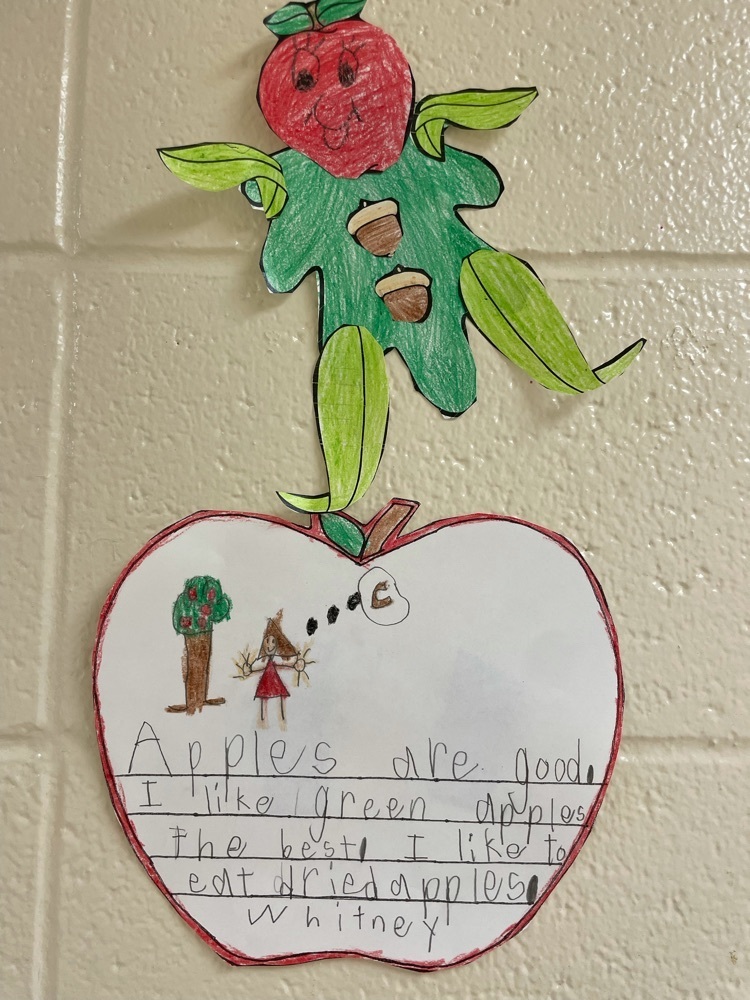 Apples are good.
I like green apples
the best. I like to
eat dried apples.
Whitney